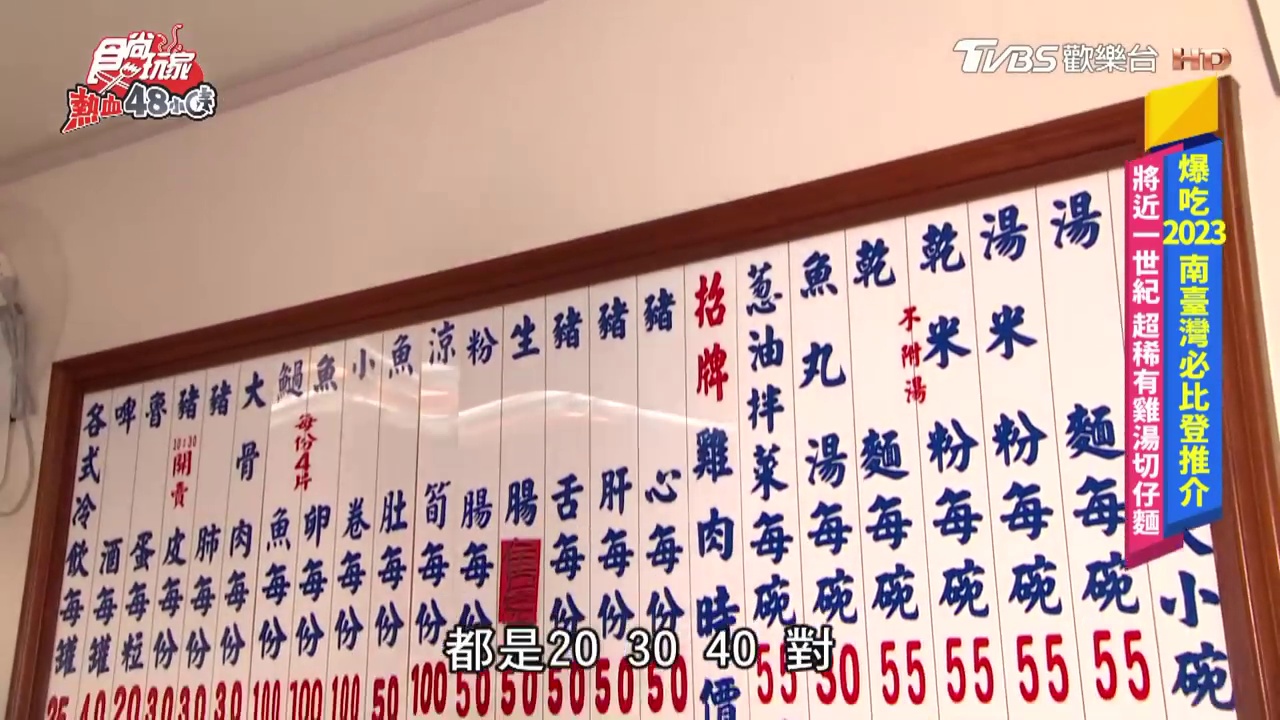 食尚玩家
熱血48小時
TVBS歡樂台 HD
爆吃2023南臺灣必比登推介
將近一世紀 超稀有雞湯切仔麵
大小碗
湯麵每碗55
湯米粉每碗55
乾米粉每碗55
不附湯
乾麵每碗55
魚丸湯每碗30
葱油拌菜每碗55
招牌雞肉時價
豬心每份50
豬肝每份50
豬舌每份50
生腸
50
粉腸每份50
涼筍每份100
魚肚每份50
小卷每份100
魚卵每份100
每份4片
魩魚每份100
大骨肉每份30
豬肺每份30
豬皮每份30
10:30開賣
魯蛋每粒20
啤酒每罐40
各式冷飲每罐25
都是20 30 40 對